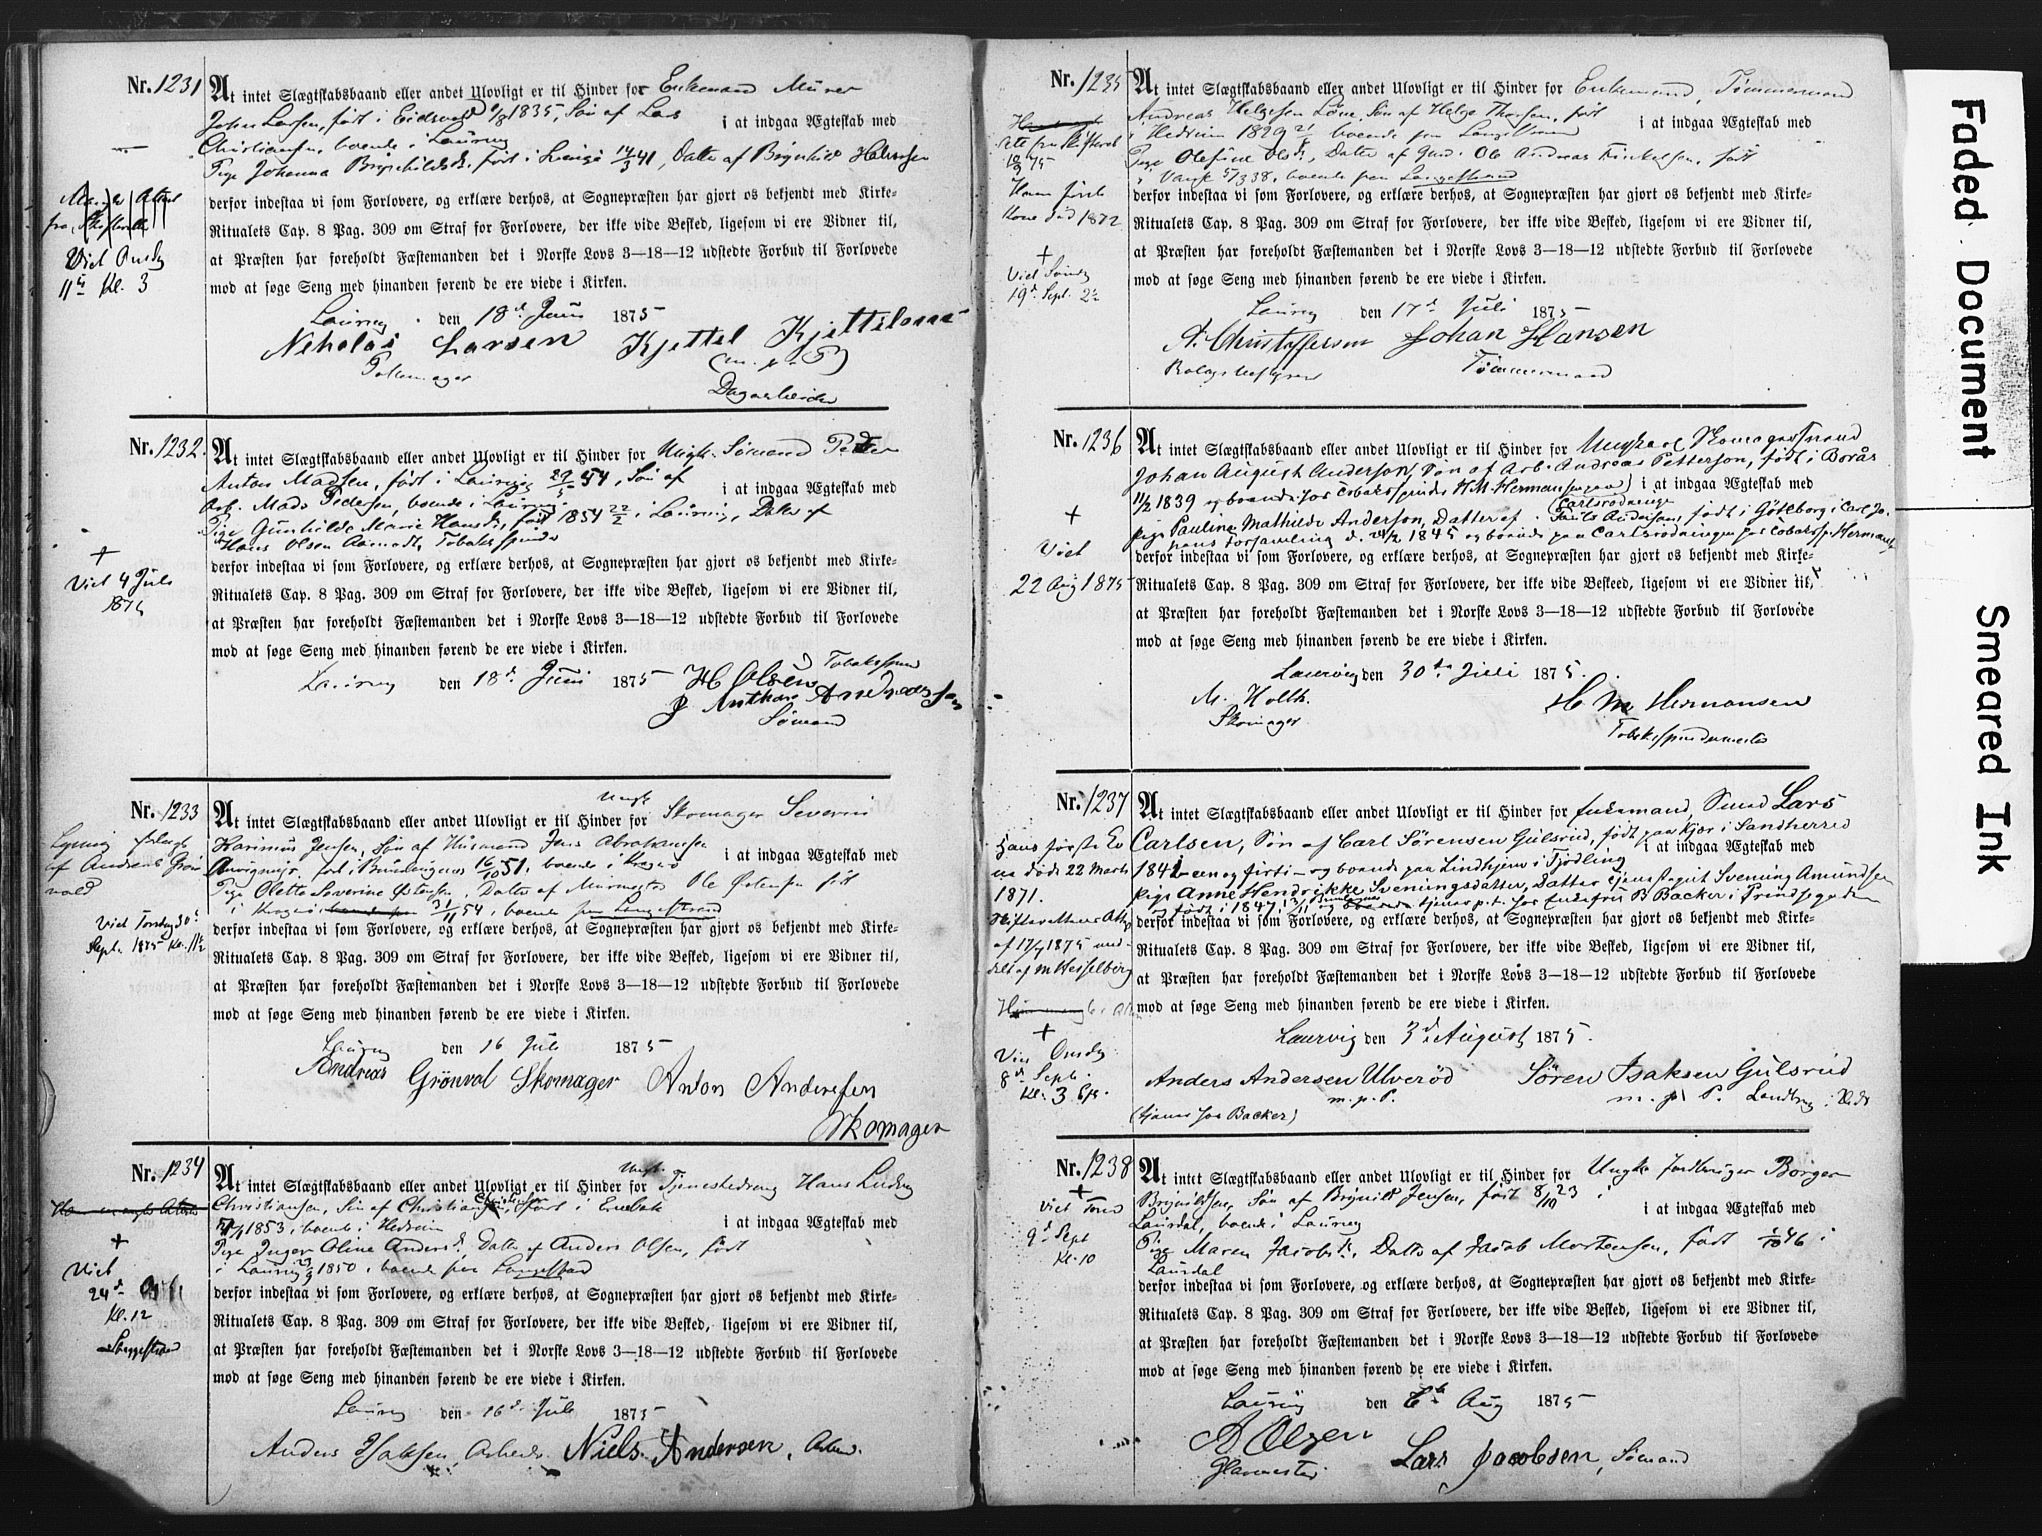 Nr. 1231
At intet Slægtskabsbaand eller andet Ulovligt er til Hinder for Enkemand Murer
John Larsen, født i Eidsvold 1835, Søn af Lars
i at indgaa Ægteskab med
Christiansen, boende i Laurvig
Pige Johanna Brynhildsd., født i 14/3 41, Datter af Brynhild Halvorsen
derfor indestaa vi som Forlovere, og erklære derhos, at Sognepræsten har gjort os bekjendt med Kirke-
Ritualets Cap. 8 Pag. 309 om Straf for Forlovere, der ikke vide Besked, ligesom vi ere Vidner til,
at Præsten har foreholdt Fæstemanden det i Norske Lovs 3—18—12 udstedte Forbud til Forlovede
mod at søge Seng med hinanden førend de ere viede i Kirken.
Viet Onsdag
11te Kl. 3
Laurvig den 18d Juni 1875
Nekolai Larsen Kjettel Kjettelsen
(m. p. P)
Dagarbeider
Nr. 1232.
At intet Slægtskabsbaand eller andet Ulovligt er til Hinder for Ungk. Sømand Peder
Anton Madsen, født i Laurvig 29/5 54, Søn af
i at indgaa Ægteskab med
Arb. Mads Pedersen, boende i Laurvig
Pige Gunhilde Marie Hansd., født 1854 22/2 i Laurvig, Datter af
Hans Olsen Aamodt, Tobaksspinder
derfor indestaa vi som Forlovere, og erklære derhos, at Sognepræsten har gjort os bekjendt med Kirke-
Ritualets Cap. 8 Pag. 309 om Straf for Forlovere, der ikke vide Besked, ligesom vi ere Vidner til,
at Præsten har foreholdt Fæstemanden det i Norske Lovs 3—18—12 udstedte Forbud til Forlovede
mod at søge Seng med hinanden førend de ere viede i Kirken.
+
Viet 4 Juli
Laurvig den 18d. Juni 1875 H Olsen Tobaksspind
Anthon Andreassen
Sømand
Nr. 1233
At intet Slægtskabsbaand eller andet Ulovligt er til Hinder for Ungk. Skomager Severin
Jensen, Søn af Husmand Jens Abrahamsen
i at indgaa Ægteskab med
16/10 51, boende i Kragerø
Pige Olette Severine Østensen, Datter af Murmester Ole Østensen født
i Kragerø 31/11 54, boende paa Langestrand
derfor indestaa vi som Forlovere, og erklære derhos, at Sognepræsten har gjort os bekjendt med Kirke-
Ritualets Cap. 8 Pag. 309 om Straf for Forlovere, der ikke vide Besked, ligesom vi ere Vidner til,
at Præsten har foreholdt Fæstemanden det i Norske Lovs 3—18—12 udstedte Forbud til Forlovede
mod at søge Seng med hinanden førend de ere viede i Kirken.
af Andreas Grøn
vold
Viet Torsdag 30d
Sept. 1875 Kl. 11½
Laurvig den 16 Juli 1875
Andreas Grönval Skomager Anton Andersen
Skomager
Nr. 1234
At intet Slægtskabsbaand eller andet Ulovligt er til Hinder for Ungk. Tjenestedreng Hans Ludvig
Christiansen, Søn af Christian Christensen, født i Enebak
1853, boende i Hedrum
i at indgaa Ægteskab med
Pige Inger Oline Andersd., Datter af Anders Olsen, født
i Laurvig 1850, boende paa Langestrand
derfor indestaa vi som Forlovere, og erklære derhos, at Sognepræsten har gjort os bekjendt med Kirke-
Ritualets Cap. 8 Pag. 309 om Straf for Forlovere, der ikke vide Besked, ligesom vi ere Vidner til,
at Præsten har foreholdt Fæstemanden det i Norske Lovs 3—18—12 udstedte Forbud til Forlovede
mod at søge Seng med hinanden førend de ere viede i Kirken.
+
Viet
24d
Kl. 12
Langestrand
Laurvig den 16d. Juli 1875
Anders Isaksen, Arbeder Niels Andersen, Arbeid.
Nr. 1235
At intet Slægtskabsbaand eller andet Ulovligt er til Hinder for Enkemand, Tømmermand
Andreas Helgesen Løve, Søn af Helge Thorsen, født
i Hedrum 1829, boende paa Langestrand
i at indgaa Ægteskab med
Pige Olefine Olsd., Datter af Ole Andreas, født
5/3 38, boende paa Langestrand
derfor indestaa vi som Forlovere, og erklære derhos, at Sognepræsten har gjort os bekjendt med Kirke-
Ritualets Cap. 8 Pag. 309 om Straf for Forlovere, der ikke vide Besked, ligesom vi ere Vidner til,
at Præsten har foreholdt Fæstemanden det i Norske Lovs 3—18—12 udstedte Forbud til Forlovede
mod at søge Seng med hinanden førend de ere viede i Kirken.
Hans første
Kone død 1872
+
Viet Søndag
19d Sept.
Laurvig den 17d Juli 1875
A. Christoffersen Johan Hansen
Tømmermand
Nr. 1236
At intet Slægtskabsbaand eller andet Ulovligt er til Hinder for Ungkarl Skomagersvend
Johan August Anderson, Søn af Arb. Andreas Petterson, født i Borås
11/2 1839 og boende hos Tobakspinder H. M. Hermansen i at indgaa Ægteskab med
Carlsrødningen
pige Pauline Mathilde Anderson, Datter af Anderson, født i Göteborg i Carl Jo-
hans Forsamling d. 24/2 1845 og boende paa Carlsrødningen hos Tobaksp. Hermansen
derfor indestaa vi som Forlovere, og erklære derhos, at Sognepræsten har gjort os bekjendt med Kirke-
Ritualets Cap. 8 Pag. 309 om Straf for Forlovere, der ikke vide Besked, ligesom vi ere Vidner til,
at Præsten har foreholdt Fæstemanden det i Norske Lovs 3—18—12 udstedte Forbud til Forlovede
mod at søge Seng med hinanden førend de ere viede i Kirken.
+
Viet
22 Aug 1875
Laurvig den 30te Juli 1875.
M. Holth. H M Hermansen
Skomager Tobaksspindermester
Nr. 1237
At intet Slægtskabsbaand eller andet Ulovligt er til Hinder for Enkemand, Smed Lars
Carlsen, Søn af Carl Sörensen Gulsrud, født paa Kjær i Sandherred
i at indgaa Ægteskab med
1841 – een og firti – og boende paa Lindhjem i Tjødling
pige Anne Hendrikke Sveningsdatter, Datter af Svening Amundsen
født i 1847, tjener p.t. hos Enkefru B Backer i Prindsegaden
derfor indestaa vi som Forlovere, og erklære derhos, at Sognepræsten har gjort os bekjendt med Kirke-
Ritualets Cap. 8 Pag. 309 om Straf for Forlovere, der ikke vide Besked, ligesom vi ere Vidner til,
at Præsten har foreholdt Fæstemanden det i Norske Lovs 3—18—12 udstedte Forbud til Forlovede
mod at søge Seng med hinanden førend de ere viede i Kirken.
Hans første Ko
na døde 22 Marts
1871.
Skifterettens Attest
af 17/7 1875 med-
delt af M Hesselberg
+
Viet Onsdag
8de Sept.
Kl. 3
Laurvig den 3d. August 1875.
Anders Andersen Ulverød Søren Isaksen Gulsrud
m. p. P. m. p. P.
(tjener hos Backer)
Nr. 1238
At intet Slægtskabsbaand eller andet Ulovligt er til Hinder for Ungk. Jordbruger Borger
Brynildsen, Søn af Brynild Jensen, født 8/10 23 i
Laurdal, boende i Laurvig
i at indgaa Ægteskab med
Pige Maren Jacobsd., Datter af Jacob Mortensen, født 1/10 46 i
Laurdal
derfor indestaa vi som Forlovere, og erklære derhos, at Sognepræsten har gjort os bekjendt med Kirke-
Ritualets Cap. 8 Pag. 309 om Straf for Forlovere, der ikke vide Besked, ligesom vi ere Vidner til,
at Præsten har foreholdt Fæstemanden det i Norske Lovs 3—18—12 udstedte Forbud til Forlovede
mod at søge Seng med hinanden førend de ere viede i Kirken.
+
Viet
9d Sept
Kl. 10
Laurvig den 6te Aug 1875
A Olsen Lars Jacobsen, Sømand
Glarmester
Faded Document
Smeared Ink